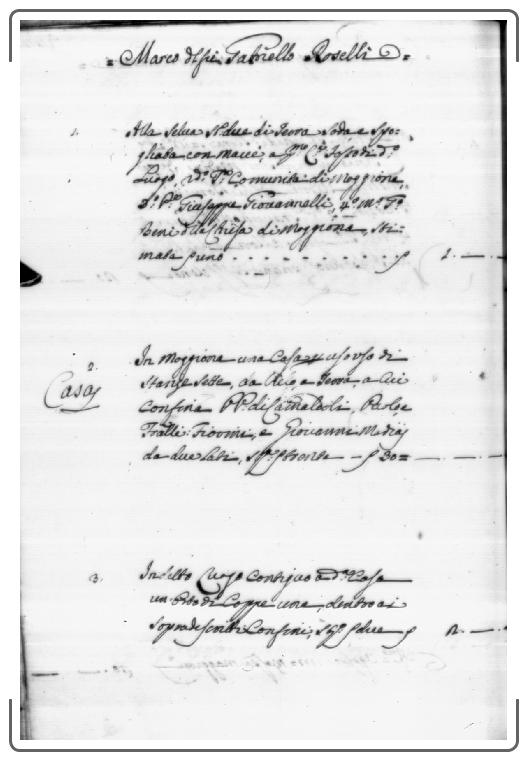 = Marco di Ser Gabriello Roselli =
1. Alla Selva St. due di Terra Soda e Spo-
gliata con macie, a p.mo C.e Fosso di d.o
Luogo, 2.o T.o Comunità di Moggiona,
3.o P.o Giuseppe Giovannelli, 4.o m.o T.o
Beni della Chiesa di Moggiona, Sti-
mata s uno - - - - - - - s 1. -
2. In Moggiona una Casa
Casa
Stanze Sette, da Cielo a Terra, a Cui
Confina PP. di Camaldoli, Paolo e
Fratelli Fiorini, e Giovanni
da due Lati, s trenta - s 30 =
3. In detto Luogo Contiguo a d.a Casa
un Orto di Coppe una, dentro ai
Sopradescritti Confini, s due s 2. -